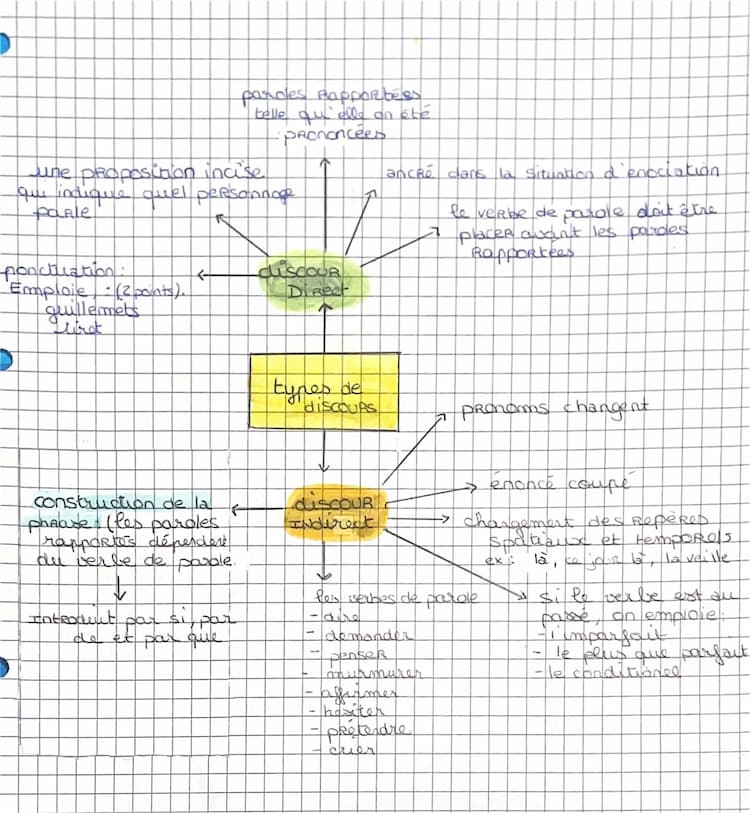 paroles rapportées
telle qu'elle on été
prononcées
une proposition incise
qui indique quel personnage
parle
ancré dans la situation d'enociation
le verbe de parole doit être
placer avant les paroles
Rapportées
ponctuation :
Emploie, : (2 points).
guillemets
tiret
discour
Direct
types de
discours
pronoms changent
discour
Indirect
énoncé coupé
changement des repères
spatiaux et temporels
ex : là, ce jour là, la veille
construction de la
phrase : (les paroles
rapportés dépendent
du verbe de parole.
Introduit par si, par
de et par que
les verbes de parole
- dire
- demander
- penser
- murmurer
- affirmer
- hésiter
- prétendre
- crier
si le verbe est au
passé, on emploie :
- l'imparfait
- le plus que parfait
- le conditionel